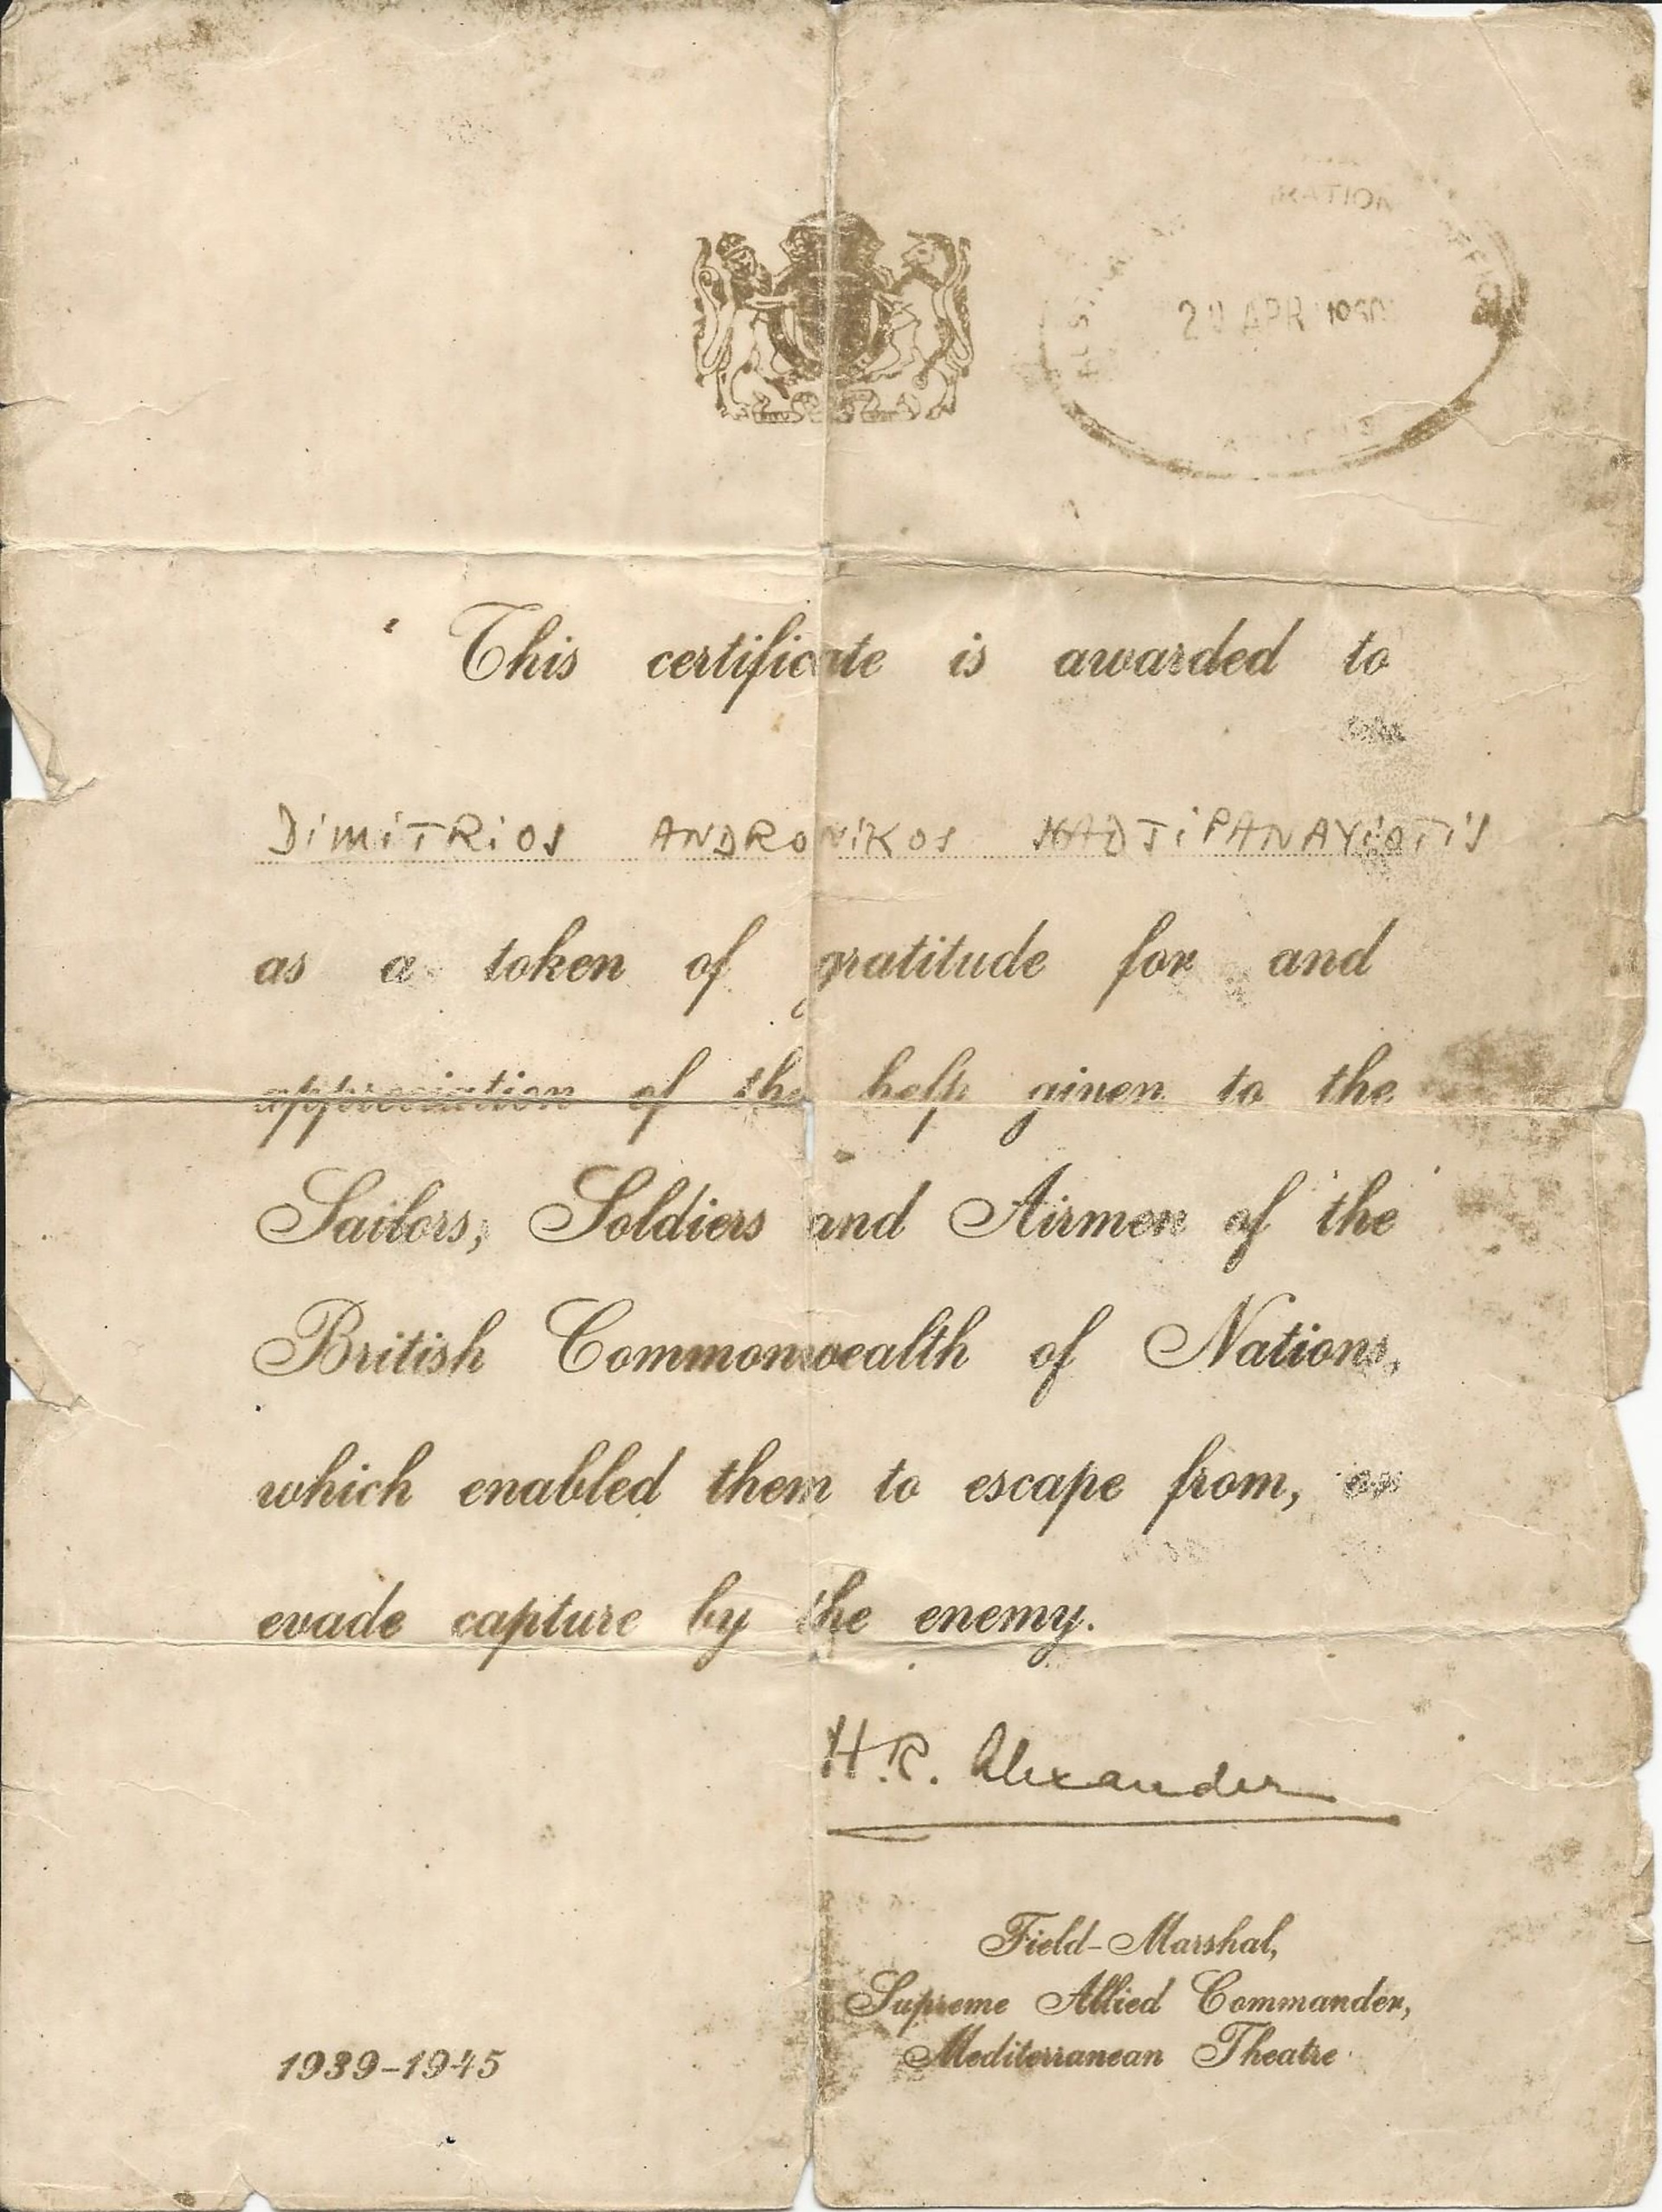 29 APR 1960
This certificate is awarded to
DIMITRIOS ANDRONIKOS HADJIPANAYIOTIS
as a token of gratitude for and
appreciation of the help given to the
Sailors, Soldiers and Airmen of the
British Commonwealth of Nations,
which enabled them to escape from, or
evade capture by the enemy.
H.R. Alexander
Field-Marshal,
Supreme Allied Commander,
Mediterranean Theatre
1939-1945